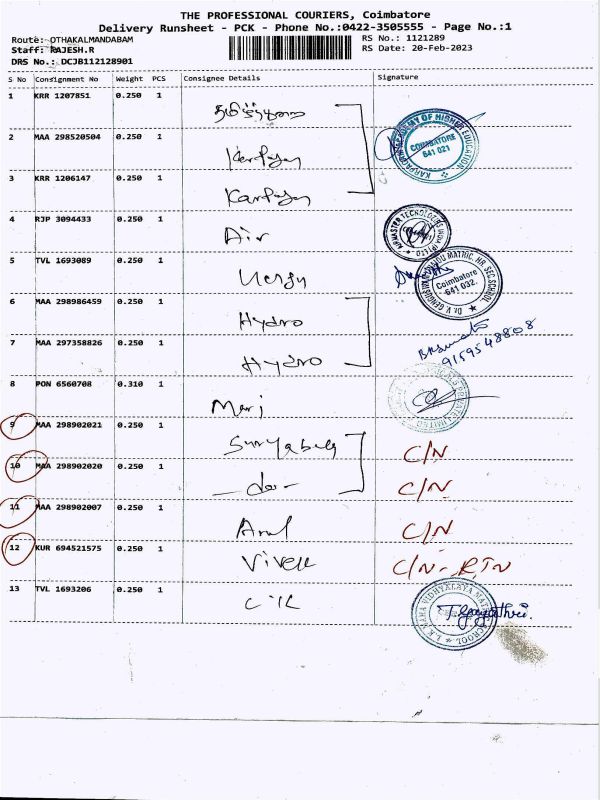 THE PROFESSIONAL COURIERS, Coimbatore
Delivery Runsheet - PCK - Phone No.:0422-3505555 - Page No.:1
Route: OTHAKALMANDABAM RS No.: 1121289
Staff: RAJESH.R RS Date: 20-Feb-2023
DRS No.: DCJB112128901
S No Consignment No Weight PCS Consignee Details Signature
1 KRR 1207851 0.250 1
KARPAGAM ACADEMY OF HIGHER EDUCATION COIMBATORE 641 021
2 MAA 298520504 0.250 1
3 KRR 1206147 0.250 1
4 RJP 3094433 0.250 1
Air
5 TVL 1693089 0.250 1
MATRIC. HR. SEC. SCHOOL Coimbatore 641 032.
6 MAA 298986459 0.250 1
Hydro
7 MAA 297358826 0.250 1
Hydro
9159548808
8 PON 6560708 0.310 1
Mari
9 MAA 298902021 0.250 1
C/N
10 MAA 298902020 0.250 1
-do- C/N
11 MAA 298902007 0.250 1
Arul C/N
12 KUR 694521575 0.250 1
Vivek C/N-RTN
13 TVL 1693206 0.250 1
T.Gayathri.